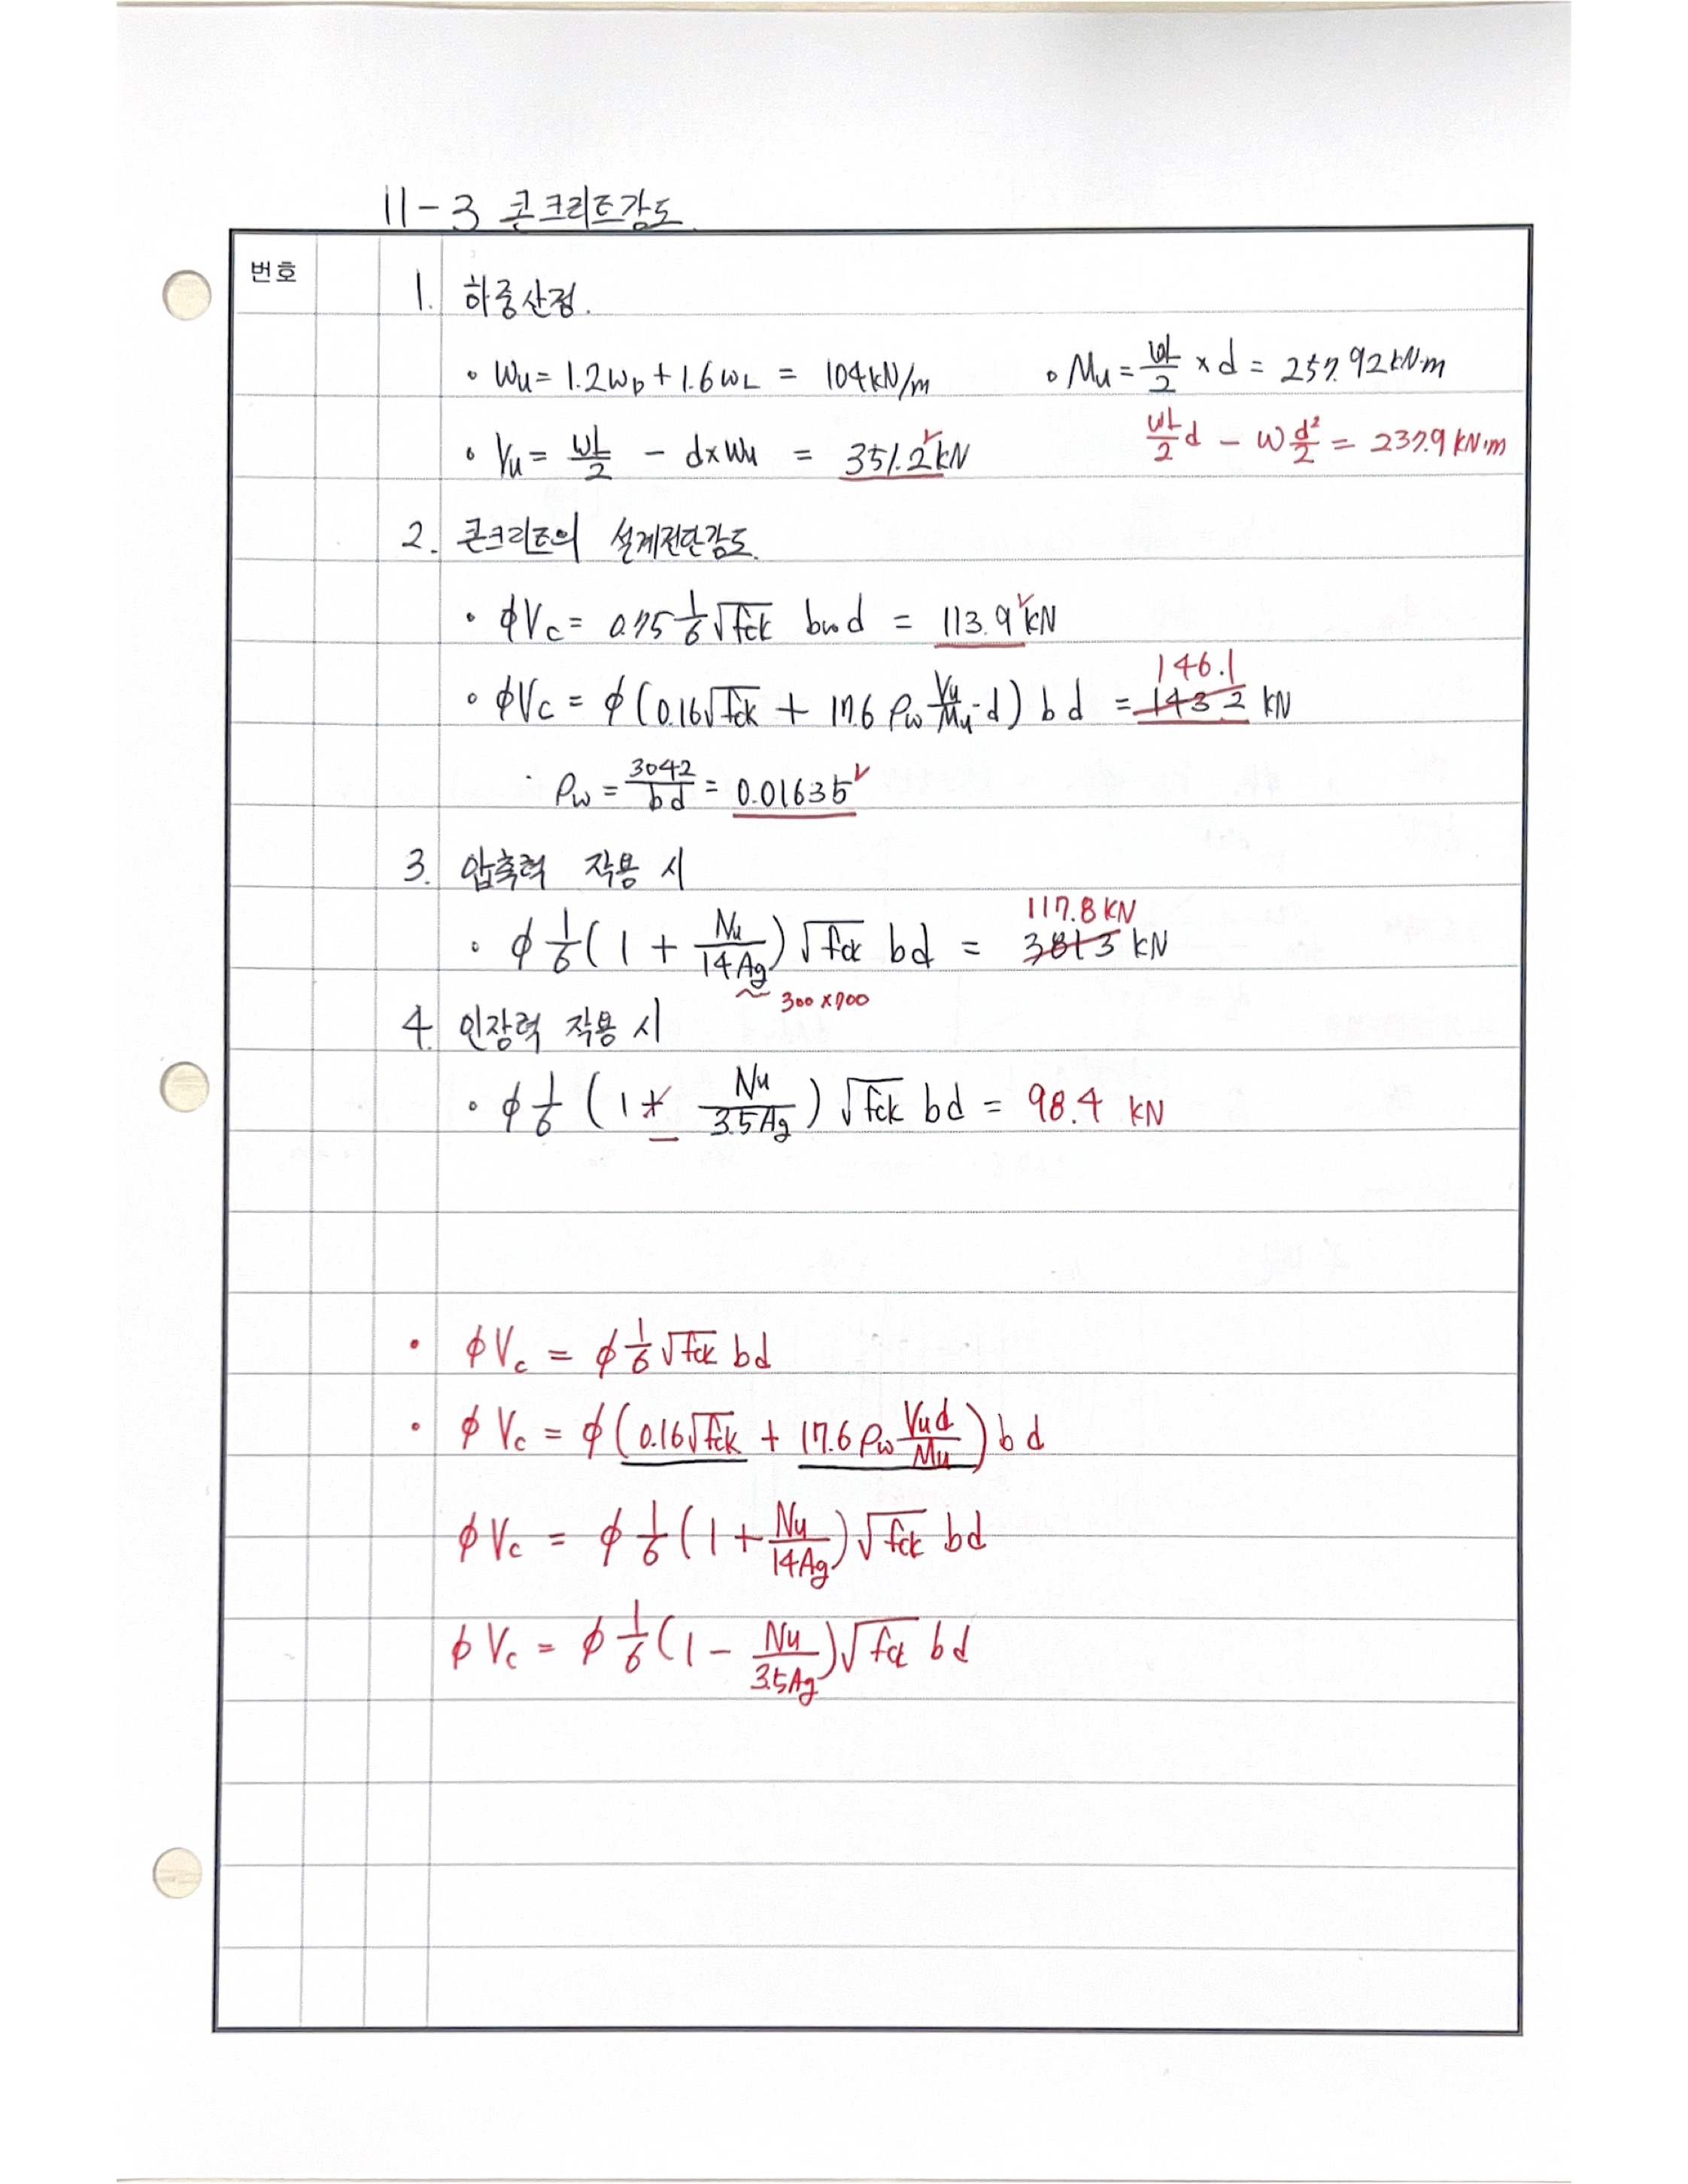 11-3 콘크리트강도.
번호
1. 하중산정.
∘ Wu = 1.2w_D + 1.6w_L = 104kN/m ∘ Mu = wL/2 × d = 257.92kN·m
∘ Vu = wL/2 - d×Wu = 351.2kN ✓ wL/2 d - w d²/2 = 237.9 kN·m
2. 콘크리트의 설계전단강도.
• φVc = 0.75 1/6 √fck bw d = 113.9 kN ✓
146.1
∘ φVc = φ(0.16√fck + 17.6 ρw Vu/Mu · d) b d = 143.2 kN
· ρw = 3042/bd = 0.01635 ✓
3. 압축력 작용 시
117.8 kN
∘ φ 1/6 (1 + Nu/14Ag) √fck bd = 381.3 kN
300 × 700
4. 인장력 작용 시
• φ 1/6 (1 - Nu/3.5Ag) √fck bd = 98.4 kN
• φVc = φ 1/6 √fck bd
• φVc = φ(0.16√fck + 17.6 ρw Vud/Mu) b d
φVc = φ 1/6 (1 + Nu/14Ag) √fck bd
φVc = φ 1/6 (1 - Nu/3.5Ag) √fck bd